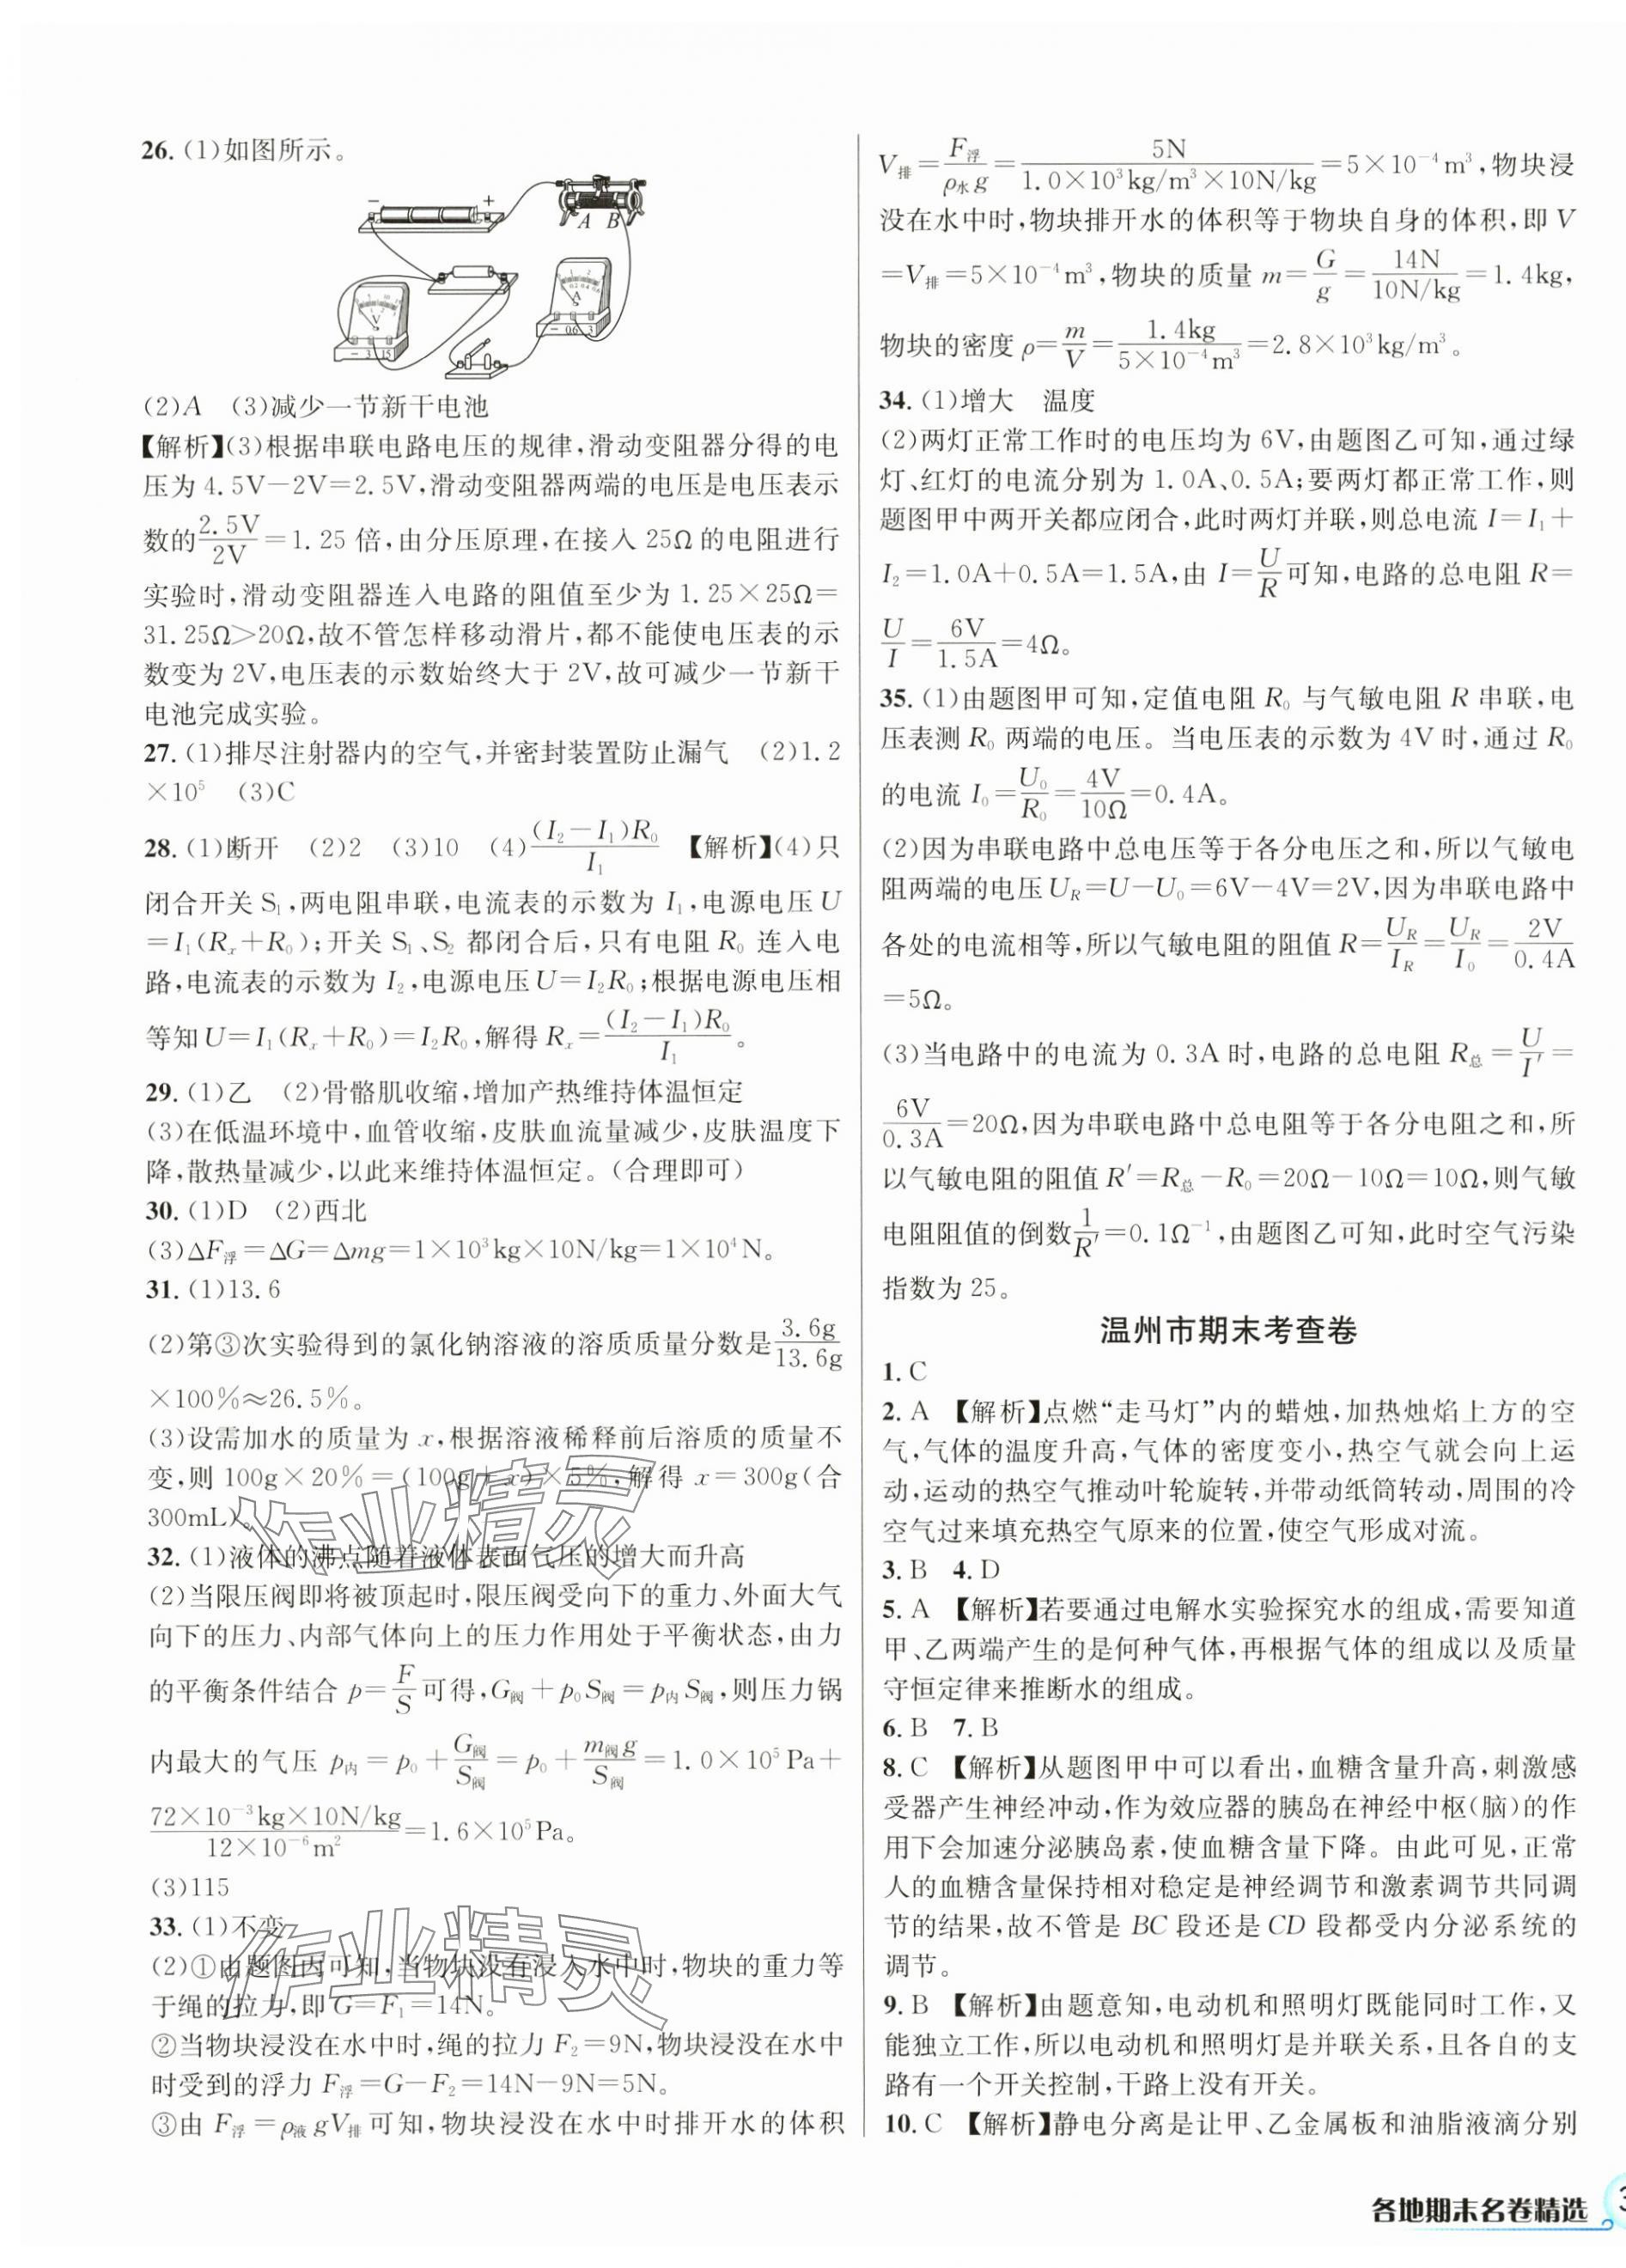 26. (1)如图所示。
− + A B
A
− 0.6 3
V
− 3 15
(2)A (3)减少一节新干电池
【解析】(3)根据串联电路电压的规律,滑动变阻器分得的电
压为 4.5V−2V=2.5V,滑动变阻器两端的电压是电压表示
数的2.5V/2V=1.25 倍,由分压原理,在接入 25Ω 的电阻进行
实验时,滑动变阻器连入电路的阻值至少为 1.25×25Ω=
31.25Ω>20Ω,故不管怎样移动滑片,都不能使电压表的示
数变为 2V,电压表的示数始终大于 2V,故可减少一节新干
电池完成实验。
27. (1)排尽注射器内的空气,并密封装置防止漏气 (2)1.2
×10⁵ (3)C
28. (1)断开 (2)2 (3)10 (4)(I₂−I₁)R₀/I₁ 【解析】(4)只
闭合开关 S₁,两电阻串联,电流表的示数为 I₁,电源电压 U
=I₁(Rₓ+R₀);开关 S₁、S₂ 都闭合后,只有电阻 R₀ 连入电
路,电流表的示数为 I₂,电源电压 U=I₂R₀;根据电源电压相
等知 U=I₁(Rₓ+R₀)=I₂R₀,解得 Rₓ=(I₂−I₁)R₀/I₁。
29. (1)乙 (2)骨骼肌收缩,增加产热维持体温恒定
(3)在低温环境中,血管收缩,皮肤血流量减少,皮肤温度下
降,散热量减少,以此来维持体温恒定。(合理即可)
30. (1)D (2)西北
(3)ΔF浮=ΔG=Δmg=1×10³kg×10N/kg=1×10⁴N。
31. (1)13.6
(2)第③次实验得到的氯化钠溶液的溶质质量分数是3.6g/13.6g
×100%≈26.5%。
(3)设需加水的质量为 x,根据溶液稀释前后溶质的质量不
变,则 100g×20%=(100g+x)×5%,解得 x=300g(合
300mL)。
32. (1)液体的沸点随着液体表面气压的增大而升高
(2)当限压阀即将被顶起时,限压阀受向下的重力、外面大气
向下的压力、内部气体向上的压力作用处于平衡状态,由力
的平衡条件结合 p=F/S可得,G阀+p₀S阀=p内S阀,则压力锅
内最大的气压 p内=p₀+G阀/S阀=p₀+m阀g/S阀=1.0×10⁵Pa+
72×10⁻³kg×10N/kg/12×10⁻⁶m²=1.6×10⁵Pa。
(3)115
33. (1)不变
(2)①由题图丙可知,当物块没有浸入水中时,物块的重力等
于绳的拉力,即 G=F₁=14N。
②当物块浸没在水中时,绳的拉力 F₂=9N,物块浸没在水中
时受到的浮力 F浮=G−F₂=14N−9N=5N。
③由 F浮=ρ液gV排可知,物块浸没在水中时排开水的体积
V排=F浮/ρ水g=5N/1.0×10³kg/m³×10N/kg=5×10⁻⁴m³,物块浸
没在水中时,物块排开水的体积等于物块自身的体积,即 V
=V排=5×10⁻⁴m³,物块的质量 m=G/g=14N/10N/kg=1.4kg,
物块的密度 ρ=m/V=1.4kg/5×10⁻⁴m³=2.8×10³kg/m³。
34. (1)增大 温度
(2)两灯正常工作时的电压均为 6V,由题图乙可知,通过绿
灯、红灯的电流分别为 1.0A、0.5A;要两灯都正常工作,则
题图甲中两开关都应闭合,此时两灯并联,则总电流 I=I₁+
I₂=1.0A+0.5A=1.5A,由 I=U/R可知,电路的总电阻 R=
U/I=6V/1.5A=4Ω。
35. (1)由题图甲可知,定值电阻 R₀ 与气敏电阻 R 串联,电
压表测 R₀ 两端的电压。当电压表的示数为 4V 时,通过 R₀
的电流 I₀=U₀/R₀=4V/10Ω=0.4A。
(2)因为串联电路中总电压等于各分电压之和,所以气敏电
阻两端的电压 U_R=U−U₀=6V−4V=2V,因为串联电路中
各处的电流相等,所以气敏电阻的阻值 R=U_R/I_R=U_R/I₀=2V/0.4A
=5Ω。
(3)当电路中的电流为 0.3A 时,电路的总电阻 R总=U/I′=
6V/0.3A=20Ω,因为串联电路中总电阻等于各分电阻之和,所
以气敏电阻的阻值 R′=R总−R₀=20Ω−10Ω=10Ω,则气敏
电阻阻值的倒数1/R′=0.1Ω⁻¹,由题图乙可知,此时空气污染
指数为 25。
温州市期末考查卷
1. C
2. A 【解析】点燃“走马灯”内的蜡烛,加热烛焰上方的空
气,气体的温度升高,气体的密度变小,热空气就会向上运
动,运动的热空气推动叶轮旋转,并带动纸筒转动,周围的冷
空气过来填充热空气原来的位置,使空气形成对流。
3. B 4. D
5. A 【解析】若要通过电解水实验探究水的组成,需要知道
甲、乙两端产生的是何种气体,再根据气体的组成以及质量
守恒定律来推断水的组成。
6. B 7. B
8. C 【解析】从题图甲中可以看出,血糖含量升高,刺激感
受器产生神经冲动,作为效应器的胰岛在神经中枢(脑)的作
用下会加速分泌胰岛素,使血糖含量下降。由此可见,正常
人的血糖含量保持相对稳定是神经调节和激素调节共同调
节的结果,故不管是 BC 段还是 CD 段都受内分泌系统的
调节。
9. B 【解析】由题意知,电动机和照明灯既能同时工作,又
能独立工作,所以电动机和照明灯是并联关系,且各自的支
路有一个开关控制,干路上没有开关。
10. C 【解析】静电分离是让甲、乙金属板和油脂液滴分别
作业精灵
作业精灵
各地期末名卷精选